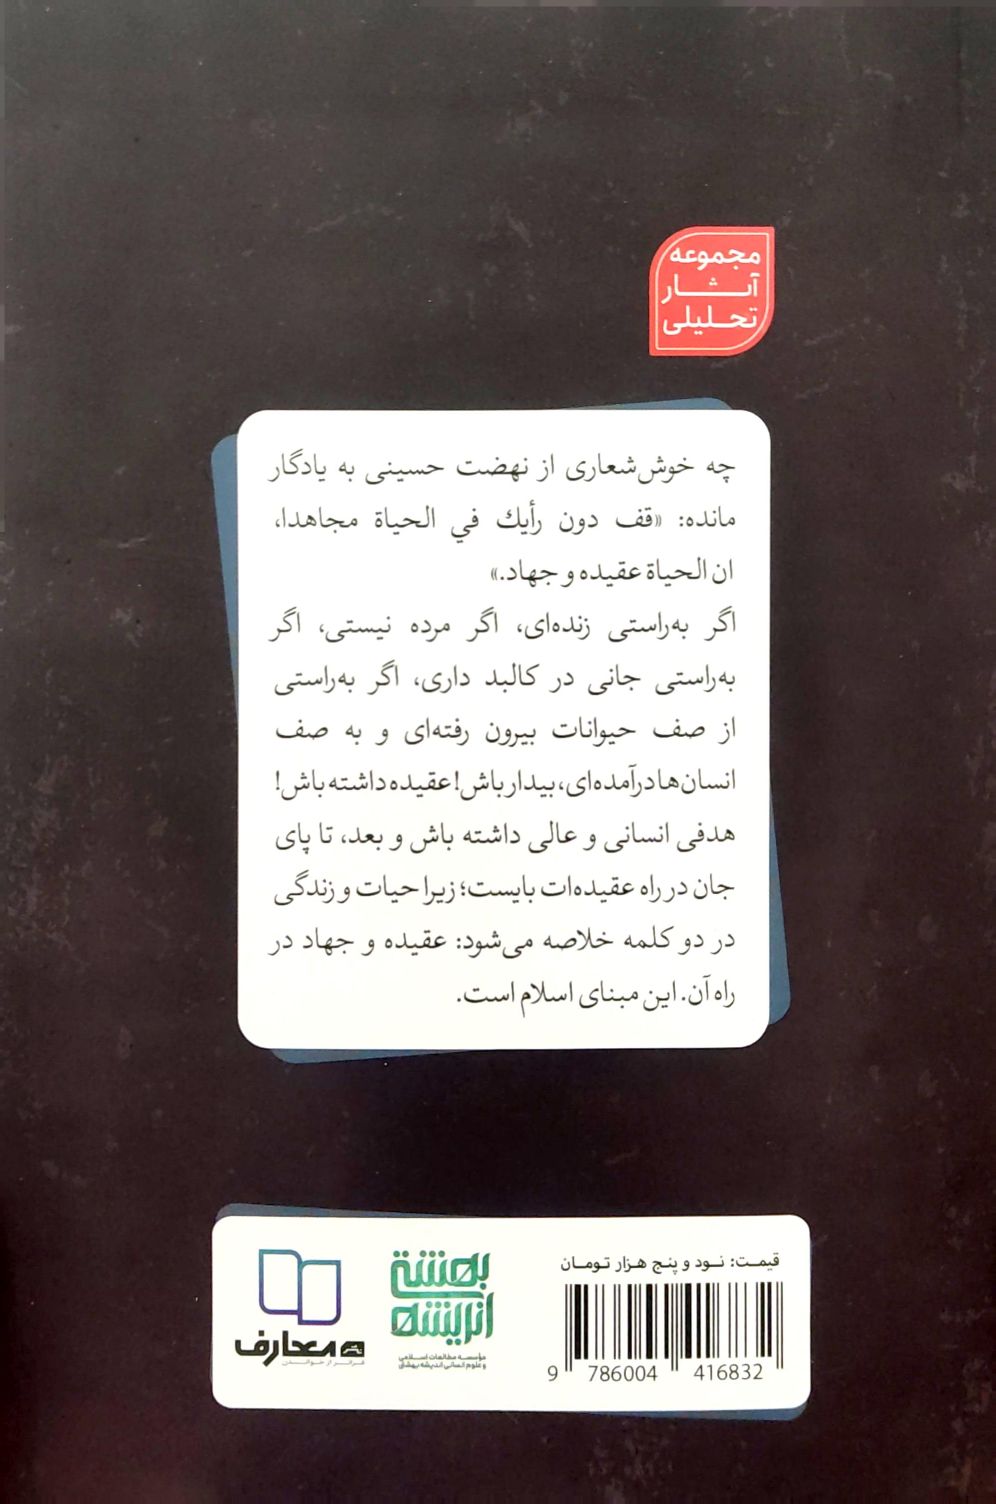 مجموعه
آثار
تحلیلی
چه خوش‌شعاری از نهضت حسینی به یادگار
مانده: «قف دون رأيك في الحياة مجاهدا،
ان الحياة عقيده و جهاد.»
اگر به‌راستی زنده‌ای، اگر مرده نیستی، اگر
به‌راستی جانی در کالبد داری، اگر به‌راستی
از صف حیوانات بیرون رفته‌ای و به صف
انسان‌ها درآمده‌ای، بیدار باش! عقیده داشته باش!
هدفی انسانی و عالی داشته باش و بعد، تا پای
جان در راه عقیده‌ات بایست؛ زیرا حیات و زندگی
در دو کلمه خلاصه می‌شود: عقیده و جهاد در
راه آن. این مبنای اسلام است.
قیمت: نود و پنج هزار تومان
9 786004 416832
بهشتی
اندیشه
مؤسسه مطالعات اسلامی
و علوم انسانی اندیشه بهشتی
معارف
فراتر از خواندن